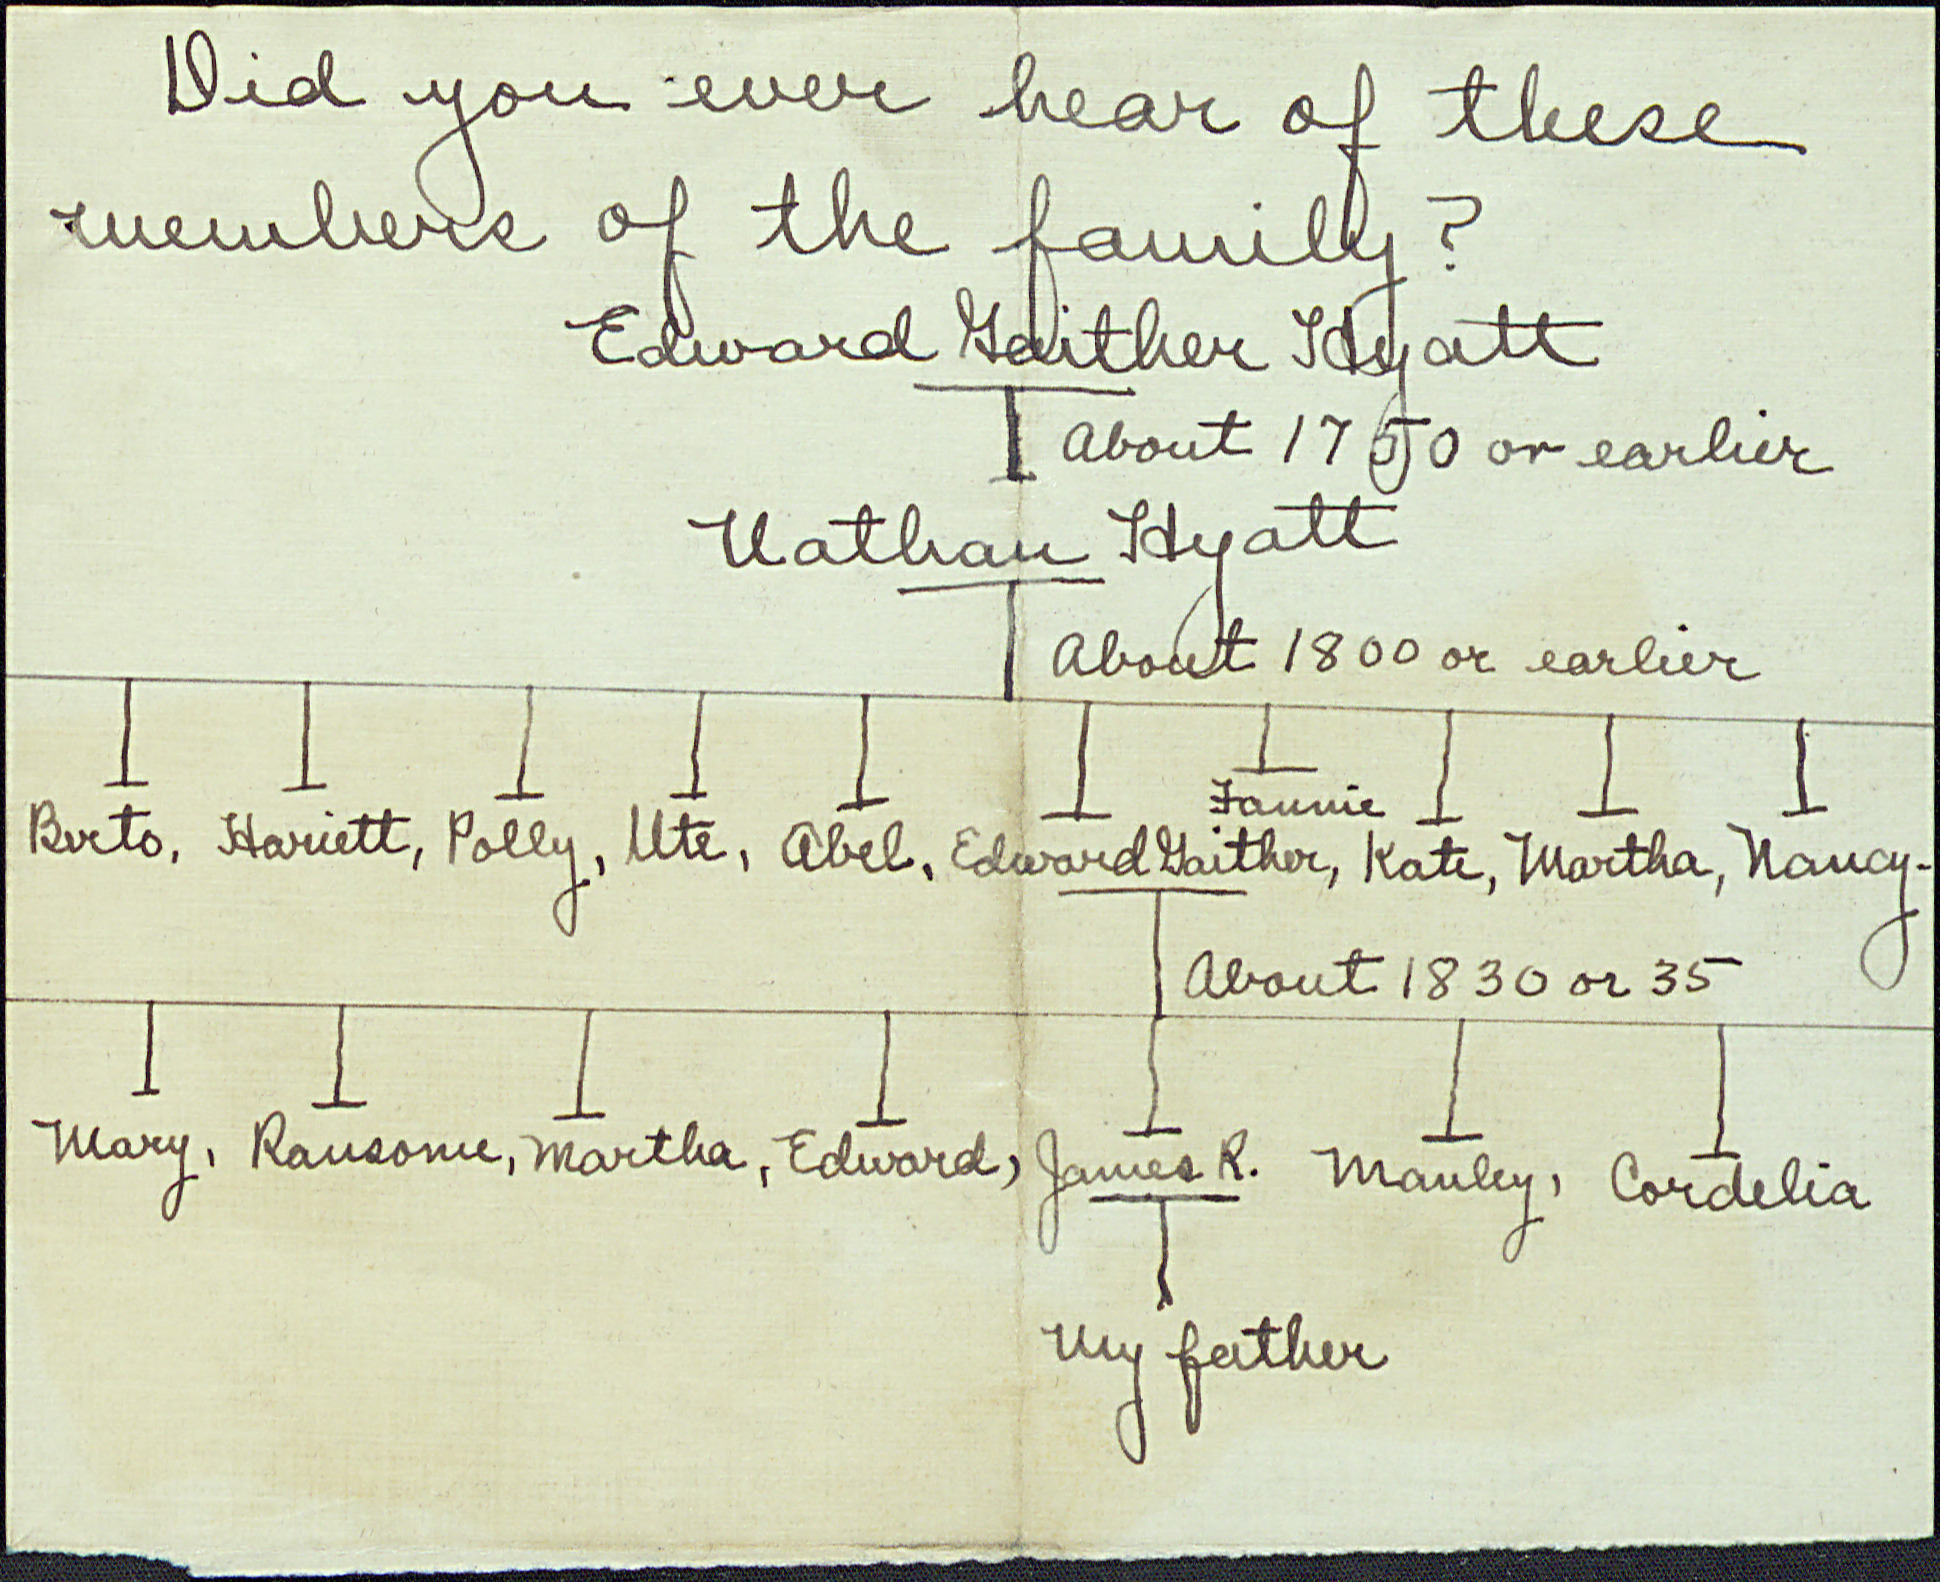 Did you ever hear of these
members of the family?
Edward Gaither Hyatt
About 1750 or earlier
Nathan Hyatt
About 1800 or earlier
Fannie
Berto, Hariett, Polly, Ute, Abel, Edward Gaither, Kate, Martha, Nancy.
About 1830 or 35
Mary, Ransome, Martha, Edward, James R. Manley, Cordelia
My father